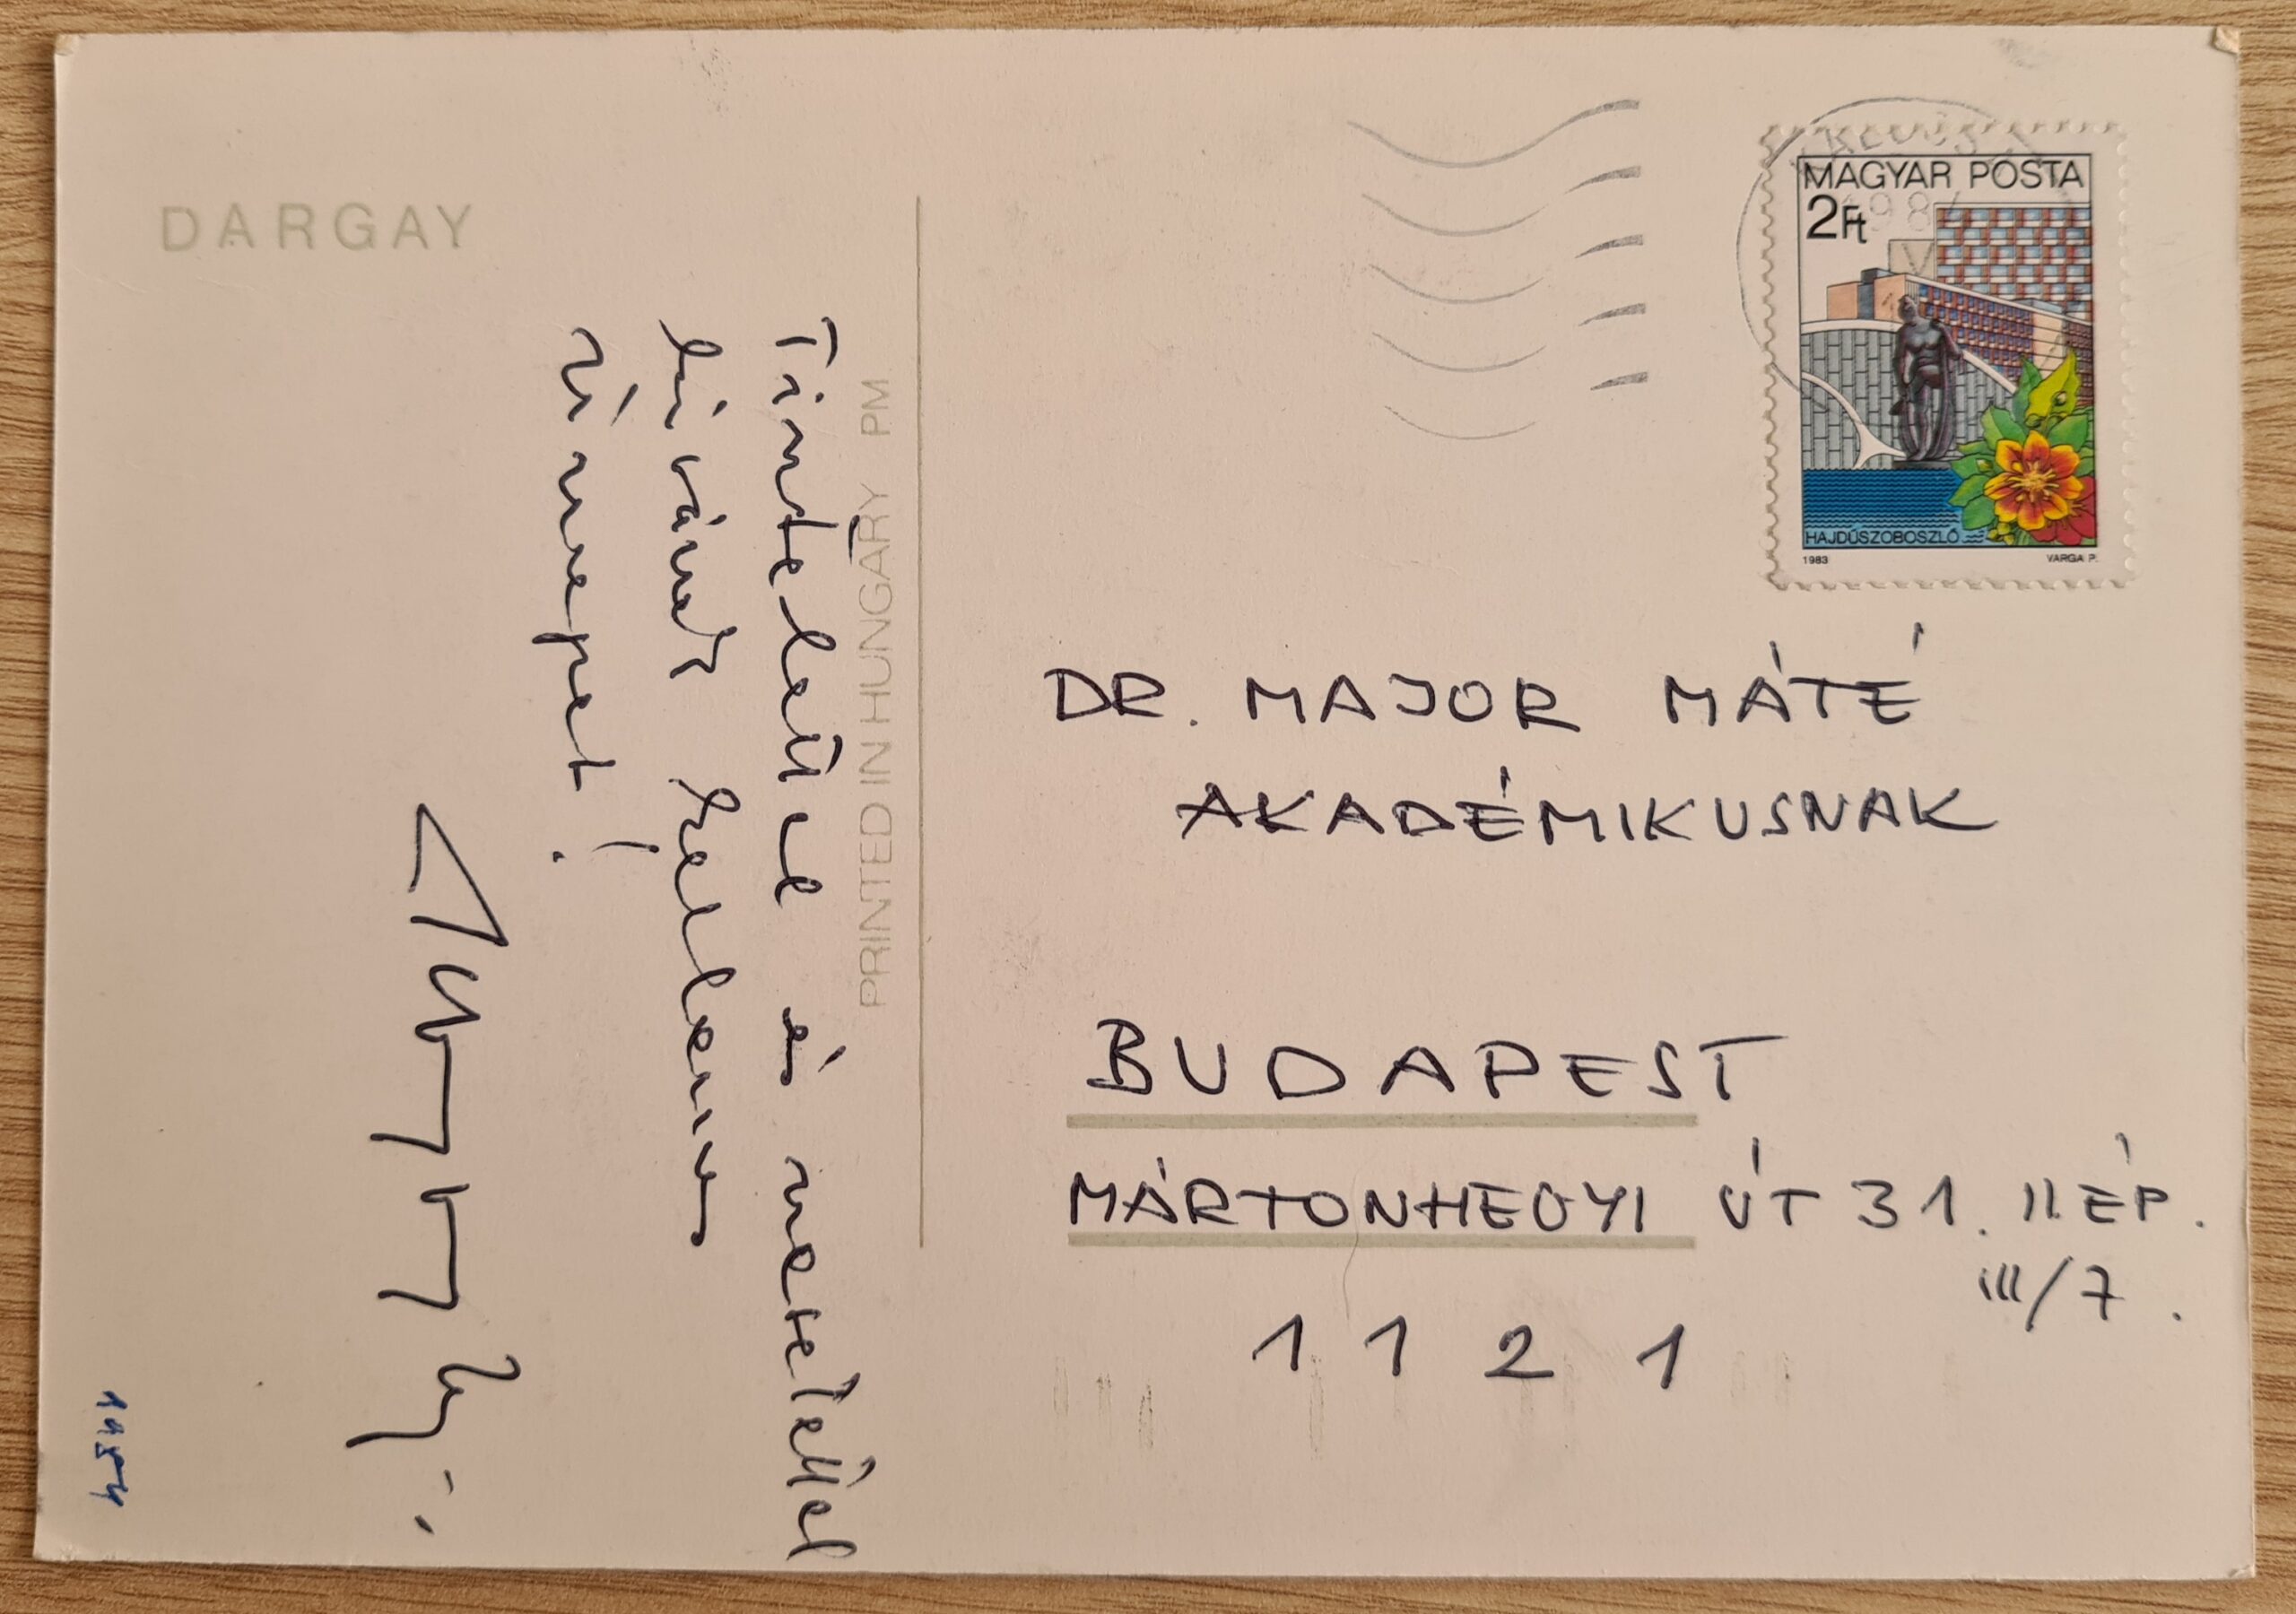 DARGAY
Tisztelettel és szeretettel
kívánok kellemes
ünnepet!
PRINTED IN HUNGARY PM
MAGYAR POSTA
2Ft
HAJDÚSZOBOSZLÓ
1983 VARGA P.
DR. MAJOR MÁTÉ
AKADÉMIKUSNAK
BUDAPEST
MÁRTONHEGYI ÚT 31. II ÉP.
III/7.
1121